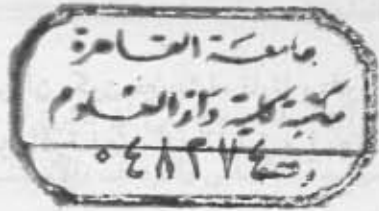 جامعة القاهرة
مكتبة كلية دار العلوم
٠٤٨٢٧٤